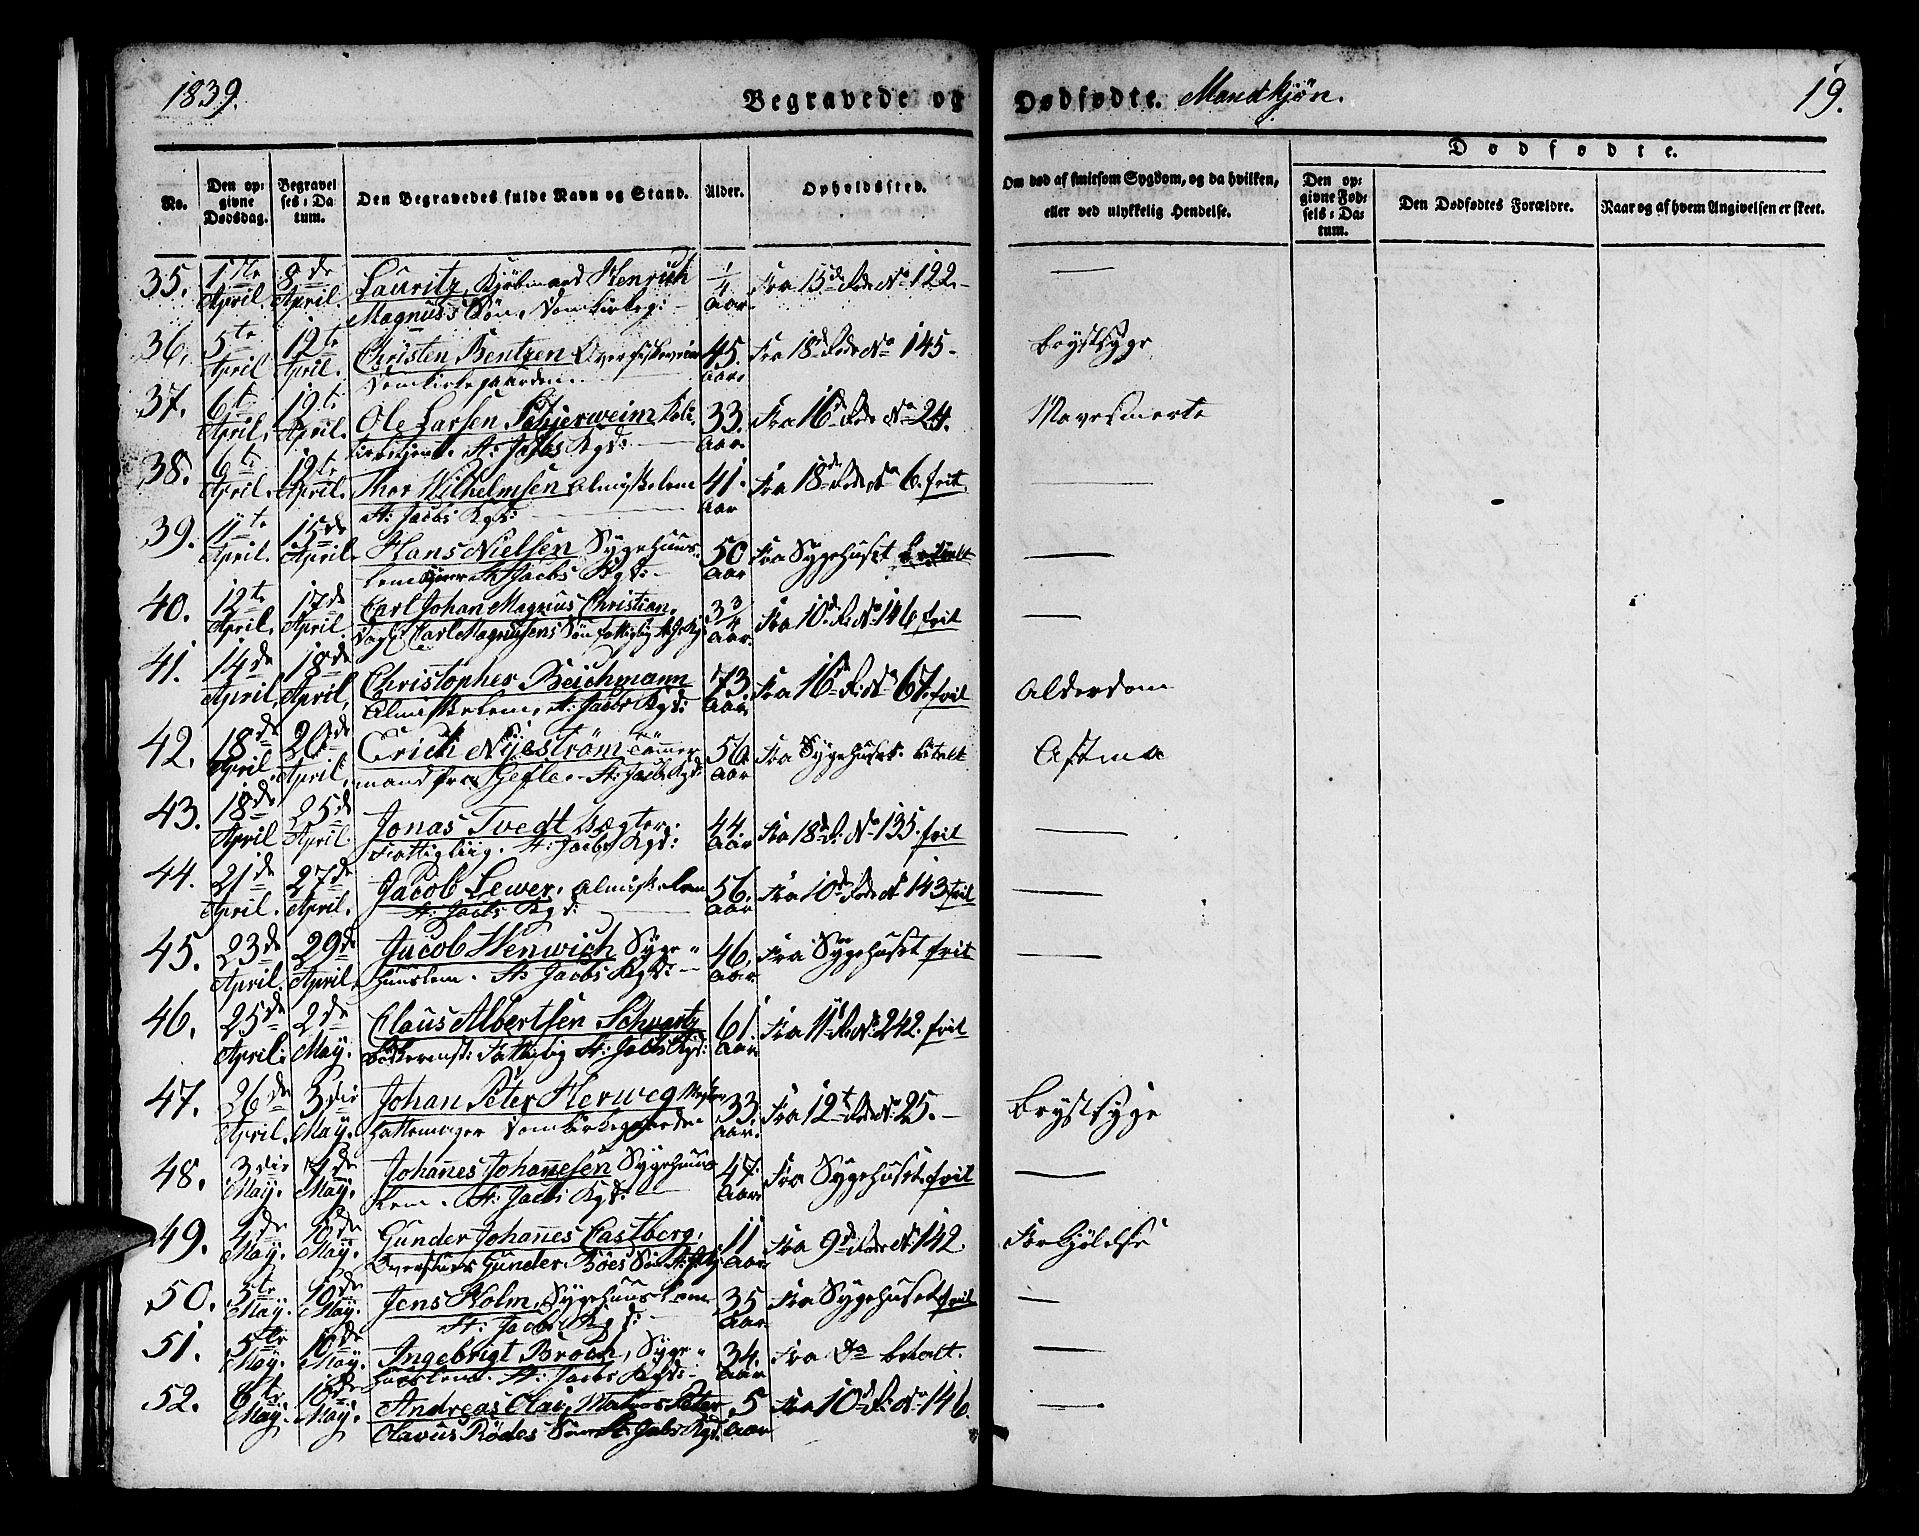 1839. Begravede og Dødfødte. Mandkjøn. 19.
Dødfødte.
No. Den opgivne Dødsdag. Begravelses-Datum. Den Begravedes fulde Navn og Stand. Alder. Opholdssted. Om død af smitsom Sygdom, og da hvilken, eller ved ulykkelig Hendelse. Den opgivne Fødsels-Datum. Den Dødfødtes Forældre. Naar og af hvem Angivelsen er skeet.
35. 1ste April 8de April Lauritz, Kjøbmand Henrich 1/4 Aar Fra 15de Rode No 122.
Magnus's Søn, Domkirkeg:
36. 5te April 12te April. Christen Bentzen 45. Aar. Fra 18de Rode No 145. Brystsyge
Domkirkegaarden.
37. 6te April. 12te April. Ole Larsen Schjerweim 33. Aar. Fra 16de Rode No 24. Mavesmerte
St: Jacobs Kgd:
38. 6te April. 12te April. Thor Wilhelmsen Almisselem 41. Aar Fra 18de Rode No 6. frit
St: Jacobs Kgd:
39. 11te April. 15de April. Hans Nielsen Sygehuus- 50 Aar Fra Sygehuset betalt
lem St Jacobs Kgd:
40. 12te April. 17de April. Carl Johan Magnus Christian, 3 3/4 Aar Fra 10de R. No 146 frit
Carl Magnusens Søn fattiglig St J: Kg:
41. 14de April, 18de April, Christopher Beichmann 73. Aar Fra 16de R. No 67. frit Alderdom
Almisselem, St: Jacobs Kgd:
42. 18de April, 20de April, Erich Nyestrøm Tømmer- 56. Aar Fra Sygehuset betalt Astma
mand fra Gefle. St: Jacobs Kgd:
43. 18de April 25de April Jonas Tvedt Vægter. 44. Aar Fra 18de R. No 135. frit
Fattigliig. St: Jacobs Kgd:
44. 21de April. 27de April. Jacob Lewer, Almisselem 56. Aar Fra 10de Rode No 143 frit
St: Jacobs Kgd:
45. 23de April. 29de April. Jacob Henwich Syge- 46. Aar Fra Sygehuset frit
huuslem. St: Jacobs Kgd:
46. 25de April: 2de May. Claus Albertsen Schvartz 61 Aar Fra 11te R. No 242. frit
Fattiglig St: Jacobs Kgd:
47. 26de April. 3die May. Johan Peter Herweg 33. Aar. Fra 12te Rode No 25. Brystsyge
Hattemager Domkirkegaarden
48. 3die May. 7de May. Johannes Johannesen Sygehuus- 47. Aar Fra Sygehuset frit
lem. St: Jacobs Kgd:
49. 4de May. 10de May. Gunder Johannes Castberg, 11 Aar Fra 9de Rode No 142. Forkjølelse
Gunder Böes Søn St: J: Kg:
50. 5te May. 10de May. Jens Holm, Sygehuuslem 35 Aar Fra Sygehuset frit
St: Jacobs Kgd:
51. 5te May. 10de May. Ingebrigt Broch, Syge- 34. Aar Fra Do betalt.
huuslem. St: Jacobs Kgd:
52. 8te May. 10de May. Andreas Olai, Peter 5 Aar Fra 10de R. No 146.
Olavus Rödes Søn St: Jacobs Kgd: